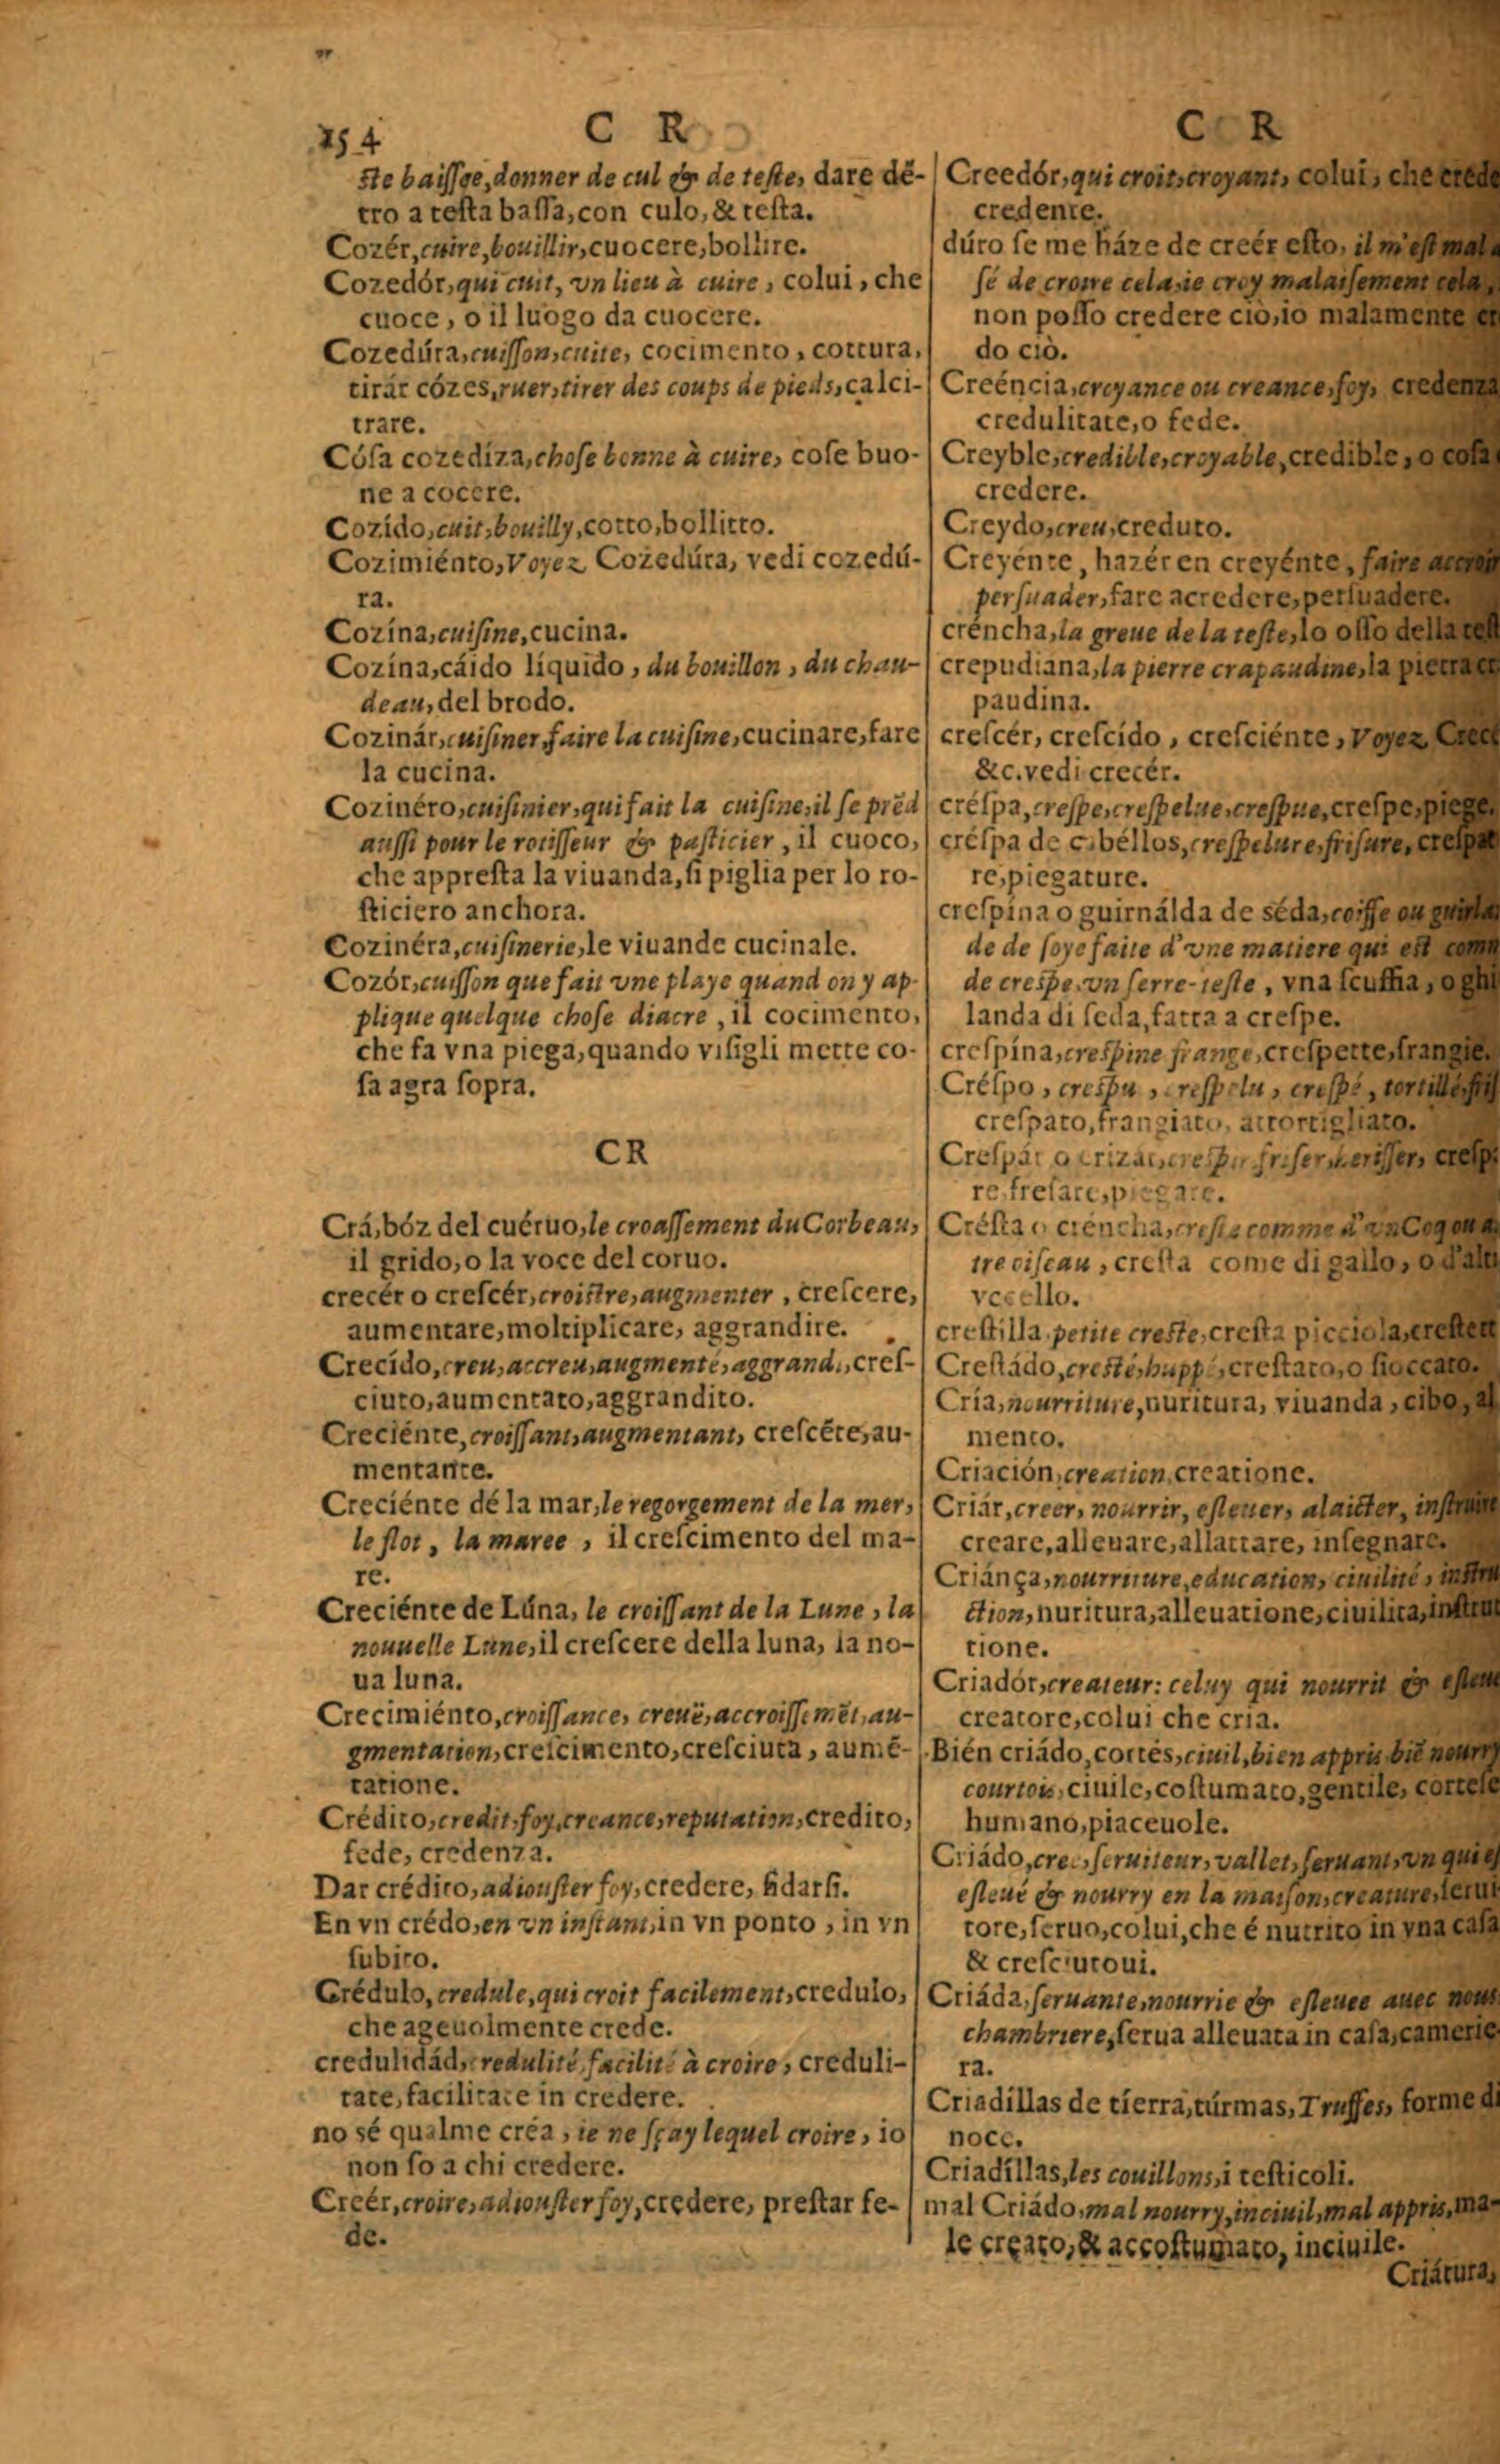 254
C R
ste baissee, donner de cul & de teste, dare dē-
tro a testa bassa, con culo, & testa.
Cozér, cuire, bouillir, cuocere, bollire.
Cozedór, qui cuit, vn lieu à cuire, colui, che
cuoce, o il luogo da cuocere.
Cozedúra, cuisson, cuite, cocimento, cottura.
tirár cózes, ruer, tirer des coups de pieds, calci-
trare.
Cósa cozedíza, chose bonne à cuire, cose buo-
ne a cocere.
Cozído, cuit, bouilly, cotto, bollitto.
Cozimiénto, Voyez Cozedúra, vedi cozedú-
ra.
Cozína, cuisine, cucina.
Cozína, cáido líquido, du bouillon, du chau-
deau, del brodo.
Cozinár, cuisiner, faire la cuisine, cucinare, fare
la cucina.
Cozinéro, cuisinier, qui fait la cuisine, il se prēd
aussi pour le rotisseur & pasticier, il cuoco,
che appresta la viuanda, si piglia per lo ro-
sticiero anchora.
Cozinéra, cuisinerie, le viuande cucinale.
Cozór, cuisson que fait vne playe quand on y ap-
plique quelque chose diacre, il cocimento,
che fa vna piega, quando visigli mette co-
sa agra sopra.
CR
Crá, bóz del cuéruo, le croassement du Corbeau,
il grido, o la voce del coruo.
crecér o crescér, croistre, augmenter, crescere,
aumentare, moltiplicare, aggrandire.
Crecído, creu, accreu, augmenté, aggrandi, cres-
ciuto, aumentato, aggrandito.
Creciénte, croissant, augmentant, crescēte, au-
mentante.
Creciénte dé la mar, le regorgement de la mer,
le flot, la maree, il crescimento del ma-
re.
Creciénte de Lúna, le croissant de la Lune, la
nouuelle Lune, il crescere della luna, la no-
ua luna.
Crecimiénto, croissance, creuë, accroissemēt, au-
gmentation, crescimento, cresciuta, aumē-
tatione.
Crédito, credit, foy, creance, reputation, credito,
fede, credenza.
Dar crédito, adiouster foy, credere, fidarsi.
En vn crédo, en vn instant, in vn ponto, in vn
subito.
Crédulo, credule, qui croit facilement, credulo,
che ageuolmente crede.
credulidád, credulité, facilité à croire, creduli-
tate, facilitate in credere.
no sé qualme créa, ie ne sçay lequel croire, io
non so a chi credere.
Creér, croire, adiouster foy, credere, prestar fe-
de.
C R
Creedór, qui croit, croyant, colui, che crede
credente.
dúro se me háze de creér esto, il m'est mal a
sé de croire cela, ie croy malaisement cela,
non posso credere ciò, io malamente cr
do ciò.
Creéncia, croyance ou creance, foy, credenza
credulitate, o fede.
Creyble, credible, croyable, credible, o cosa
credere.
Creydo, creu, creduto.
Creyénte, hazér en creyénte, faire accroir
persuader, fare acredere, persuadere.
créncha, la greue de la teste, lo osso della test
crepudiana, la pierre crapaudine, la pietra cr
paudina.
crescér, crescído, cresciénte, Voyez Crecé
&c. vedi crecér.
créspa, crespe, crespelue, crespue, crespe, piege.
créspa de cabéllos, crespelure, frisure, crespat
re, piegature.
crespína o guirnálda de séda, coiffe ou guirlan
de de soye faite d'vne matiere qui est comm
de crespe, vn serre-teste, vna scuffia, o ghi
landa di seda, fatta a crespe.
crespína, crespine frange, crespette, frangie.
Créspo, crespu, crespelu, crespé, tortillé, fris
crespato, frangiato, attortigliato.
Crespár o crizar, crespir, friser, herisser, cresp
re, fresare, piegare.
Crésta o créncha, creste comme d'vn Coq ou a
tre oiseau, cresta come di gallo, o d'altr
vccello.
crestilla, petite creste, cresta picciola, crestett
Crestádo, cresté, huppé, crestato, o fioccato.
Cría, nourriture, nuritura, viuanda, cibo, al
mento.
Criación, creation, creatione.
Criár, creer, nourrir, esleuer, alaicter, instruire
creare, alleuare, allattare, insegnare.
Criánça, nourriture, education, ciuilité, instru
ction, nuritura, alleuatione, ciuilita, instrut
tione.
Criadór, createur: celuy qui nourrit & esleue
creatore, colui che cria.
Bién criádo, cortés, ciuil, bien appris, biē nourry
courtois, ciuile, costumato, gentile, cortese
humano, piaceuole.
Criádo, creé, seruiteur, vallet, seruant, vn qui es
esleué & nourry en la maison, creature, serui
tore, seruo, colui, che é nutrito in vna casa
& cresciutoui.
Criáda, seruante, nourrie & esleuee auec nous
chambriere, serua alleuata in casa, camerie-
ra.
Criadíllas de tíerra, túrmas, Truffes, forme di
noce.
Criadíllas, les couillons, i testicoli.
mal Criádo, mal nourry, inciuil, mal appris, ma-
le creato, & accostumato, inciuile.
Criátura,